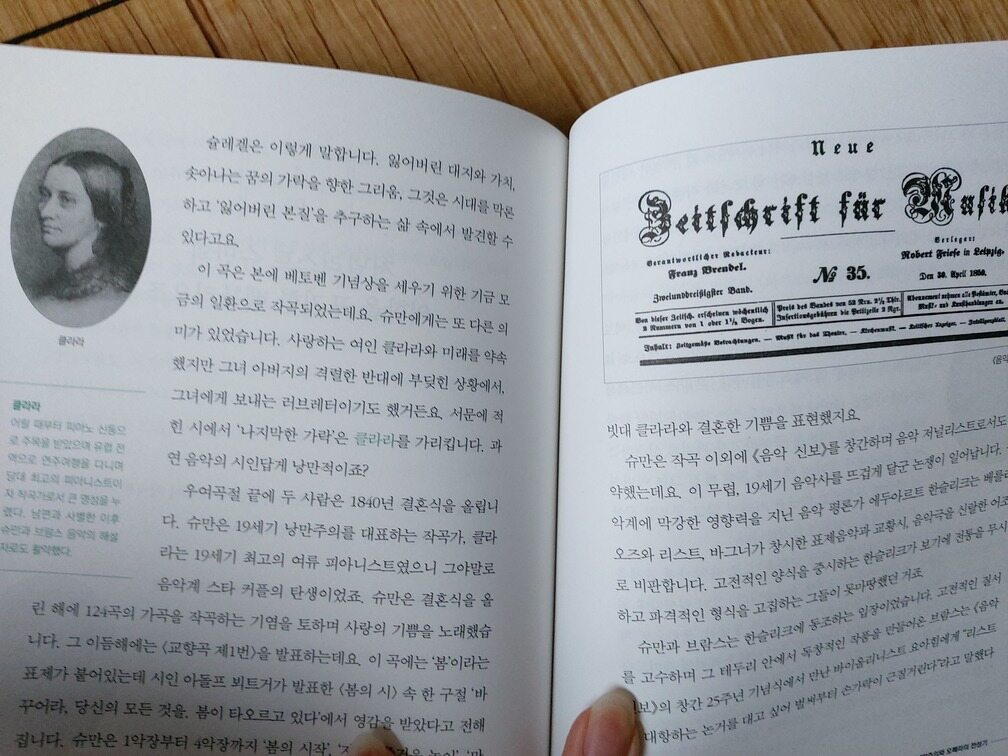 클라라
클라라
어릴 때부터 피아노 신동으
로 주목을 받았으며 유럽 전
역으로 연주여행을 다니며
당대 최고의 피아니스트이
자 작곡가로서 큰 명성을 누
렸다. 남편과 사별한 이후
슈만과 브람스 음악의 해설
자로도 활약했다.
슐레겔은 이렇게 말합니다. 잃어버린 대지와 가치,
솟아나는 꿈의 가락을 향한 그리움, 그것은 시대를 막론
하고 ‘잃어버린 본질’을 추구하는 삶 속에서 발견할 수
있다고요.
이 곡은 본에 베토벤 기념상을 세우기 위한 기금 모
금의 일환으로 작곡되었는데요. 슈만에게는 또 다른 의
미가 있었습니다. 사랑하는 여인 클라라와 미래를 약속
했지만 그녀 아버지의 격렬한 반대에 부딪힌 상황에서,
그녀에게 보내는 러브레터이기도 했거든요. 서문에 적
힌 시에서 ‘나지막한 가락’은 클라라를 가리킵니다. 과
연 음악의 시인답게 낭만적이죠?
우여곡절 끝에 두 사람은 1840년 결혼식을 올립니
다. 슈만은 19세기 낭만주의를 대표하는 작곡가, 클라
라는 19세기 최고의 여류 피아니스트였으니 그야말로
음악계 스타 커플의 탄생이었죠. 슈만은 결혼식을 올
린 해에 124곡의 가곡을 작곡하는 기염을 토하며 사랑의 기쁨을 노래했습
니다. 그 이듬해에는 〈교향곡 제1번〉을 발표하는데요. 이 곡에는 ‘봄’이라는
표제가 붙어있는데 시인 아돌프 뵈트거가 발표한 〈봄의 시〉 속 한 구절 ‘바
꾸어라, 당신의 모든 것을. 봄이 타오르고 있다’에서 영감을 받았다고 전해
집니다. 슈만은 1악장부터 4악장까지 ‘봄의 시작’,
Neue
Zeitschrift für Musik
Verantwortlicher Redacteur:
Franz Brendel.
Verleger:
Robert Friese in Leipzig.
Zweiunddreißigster Band.
№ 35.
Den 30. April 1850.
Von dieser Zeitsch. erscheinen wöchentlich
2 Nummern von 1 oder 1½ Bogen.
Preis des Bandes von 52 Nrn. 2⅓ Thlr.
Insertionsgebühren die Petitzeile 2 Ngr.
Abonnement nehmen alle Postämter,
Musik- und Kunsthandlungen
Inhalt: Zeitgemäße Betrachtungen. — Musik für das Theater. — Kirchenmusik. — Kritischer Anzeiger. — Intelligenzblatt.
《음악
빗대 클라라와 결혼한 기쁨을 표현했지요.
슈만은 작곡 이외에 《음악 신보》를 창간하며 음악 저널리스트로서도
약했는데요. 이 무렵, 19세기 음악사를 뜨겁게 달군 논쟁이 일어납니다.
악계에 막강한 영향력을 지닌 음악 평론가 에두아르트 한슬리크는 베를리
오즈와 리스트, 바그너가 창시한 표제음악과 교향시, 음악극을 신랄한 어조
로 비판합니다. 고전적인 양식을 중시하는 한슬리크가 보기에 전통을 무시
하고 파격적인 형식을 고집하는 그들이 못마땅했던 거죠.
슈만과 브람스는 한슬리크에 동조하는 입장이었습니다. 고전적인 질서
를 고수하며 그 테두리 안에서 독창적인 작품을 만들어온 브람스는 《음악
신보》의 창간 25주년 기념식에서 만난 바이올리니스트 요아힘에게 “리스트
대항하는 논거를 대고 싶어 벌써부터 손가락이 근질거린다”라고 말했다